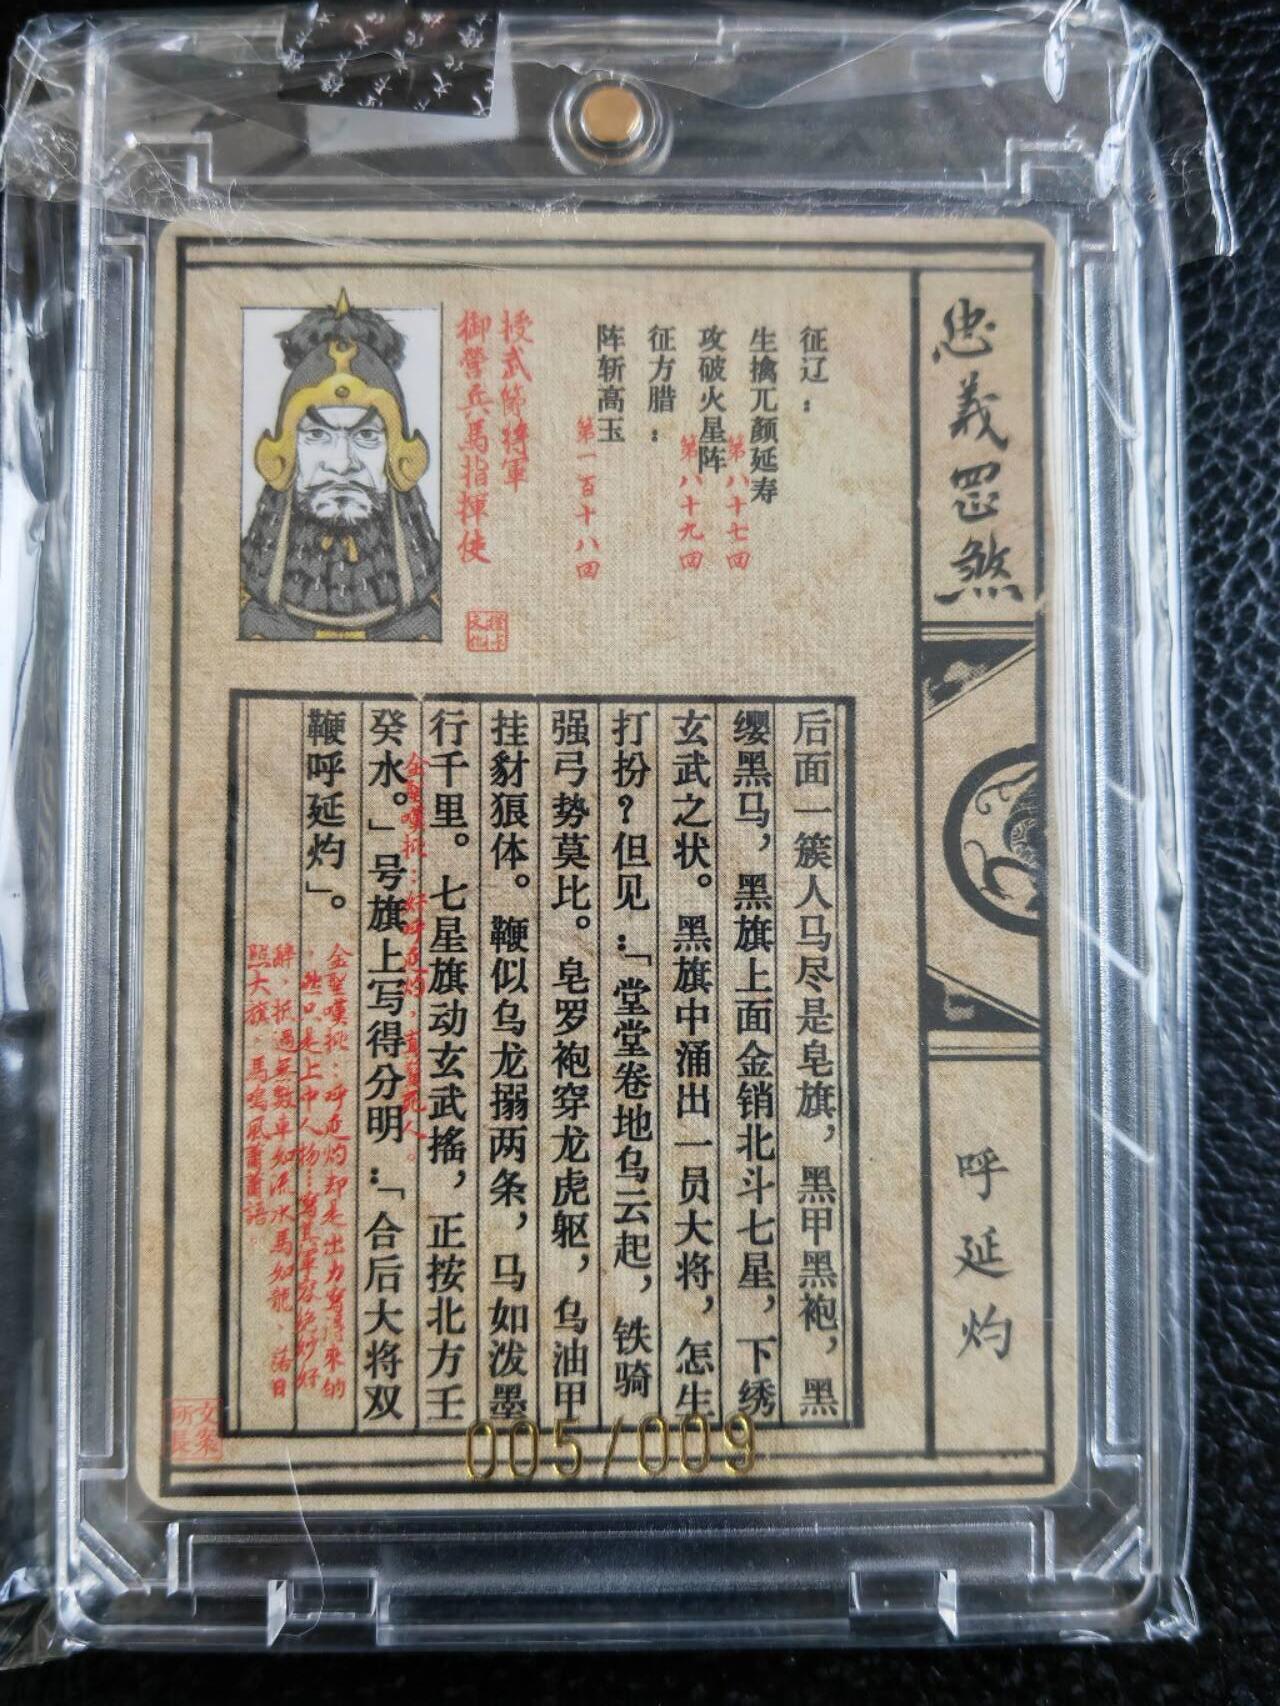 忠義罡煞
呼延灼
征辽：
生擒兀颜延寿
第八十七回
攻破火星阵
第八十九回
征方腊：
阵斩高玉
第一百十八回
授武節将軍
御營兵馬指揮使
后面一簇人马尽是皂旗，黑甲黑袍，黑
缨黑马，黑旗上面金销北斗七星，下绣
玄武之状。黑旗中涌出一员大将，怎生
打扮？但见：「堂堂卷地乌云起，铁骑
强弓势莫比。皂罗袍穿龙虎躯，乌油甲
挂豺狼体。鞭似乌龙搦两条，马如泼墨
行千里。七星旗动玄武摇，正按北方壬
癸水。」号旗上写得分明：「合后大将双
鞭呼延灼」。
金聖嘆批：好呼延灼，真賢死人。
金聖嘆批：呼延灼却是出力寫得來的
，然只是上中人物…寫其軍容絶妙好
辭，抵過無數車如流水馬如龍、落日
照大旗，馬鳴風蕭蕭語。
文案
所長
005/009